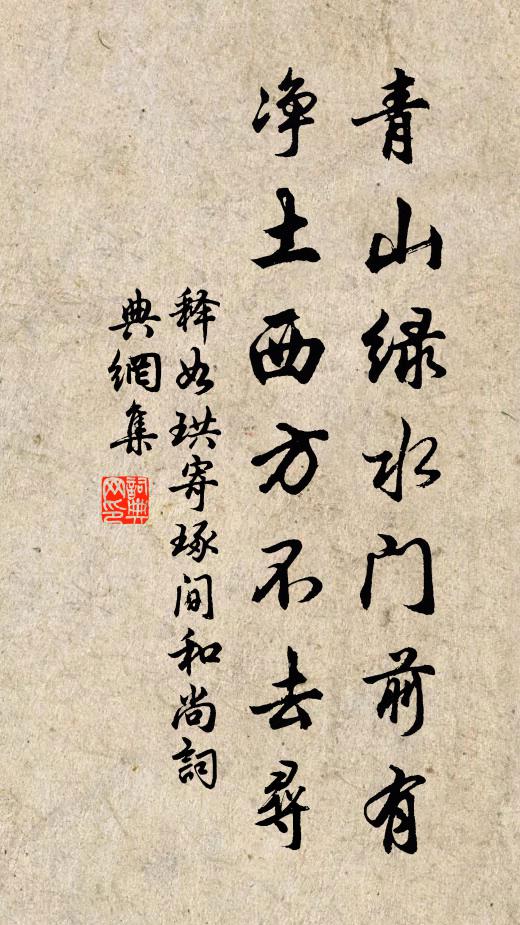 青山绿水门前有
净土西方不去寻
释如珙寄琢间和尚詞
典網集
詞典網印